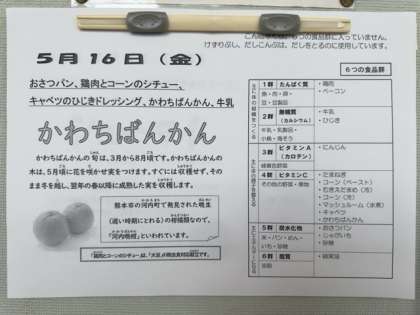 ６つの食品群に入っていません。
けずりぶし、だしこんぶは、だしをとるのに使用しています。
５月１６日（金）
おさつパン、鶏肉とコーンのシチュー、
キャベツのひじきドレッシング、かわちばんかん、牛乳
かわちばんかん
かわちばんかんの旬は、3月から8月頃です。かわちばんかんの
木は、5月頃に花を咲かせ実をつけます。すぐには収穫せず、その
まま冬を越し、翌年の春以降に成熟した実を収穫します。
熊本市の河内町で発見された晩生
（遅い時期にとれる）の柑橘類なので、
『河内晩柑』といわれています。
６つの食品群
１群 たんぱく質
魚・肉・卵・
豆・豆製品
・鶏肉
・ベーコン
２群 無機質
（カルシウム）
牛乳・乳製品・
小魚・海そう
・牛乳
・ひじき
３群 ビタミンA
（カロテン）
緑黄色野菜
・にんじん
４群 ビタミンC
その他の野菜・果物
・たまねぎ
・コーン（ペースト）
・むきえだまめ（冷）
・コーン（冷）
・マッシュルーム（水煮）
・キャベツ
・かわちばんかん
５群 炭水化物
米・パン・めん・
いも・砂糖
・おさつパン
・じゃがいも
・砂糖
６群 脂質
油脂
・綿実油